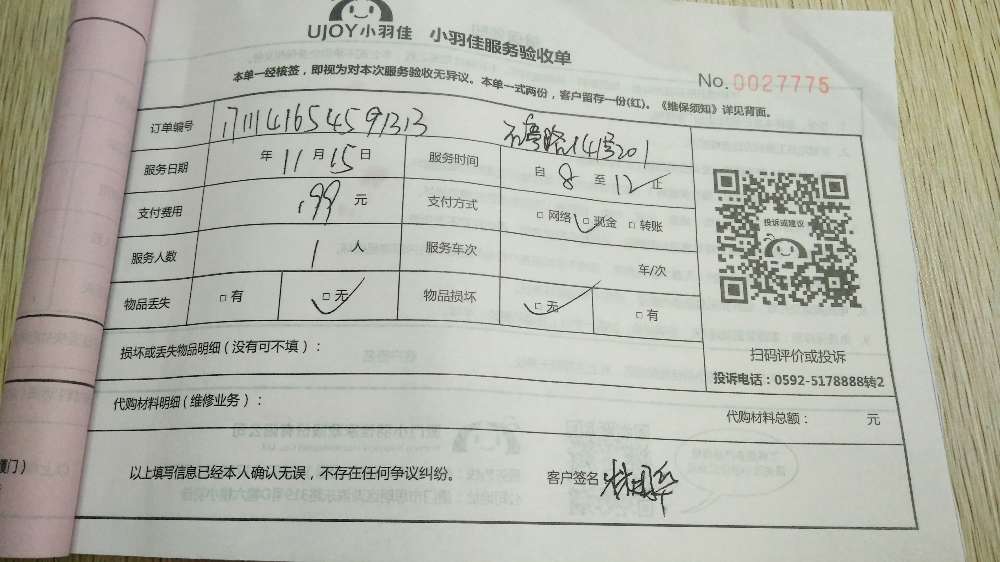 UJOY小羽佳 小羽佳服务验收单
本单一经核签，即视为对本次服务验收无异议。本单一式两份，客户留存一份(红)。《维保须知》详见背面。
No.0027775
订单编号
服务日期 年 11 月 15 日 服务时间 自 8 至 12 止
支付费用 .99 元 支付方式 □ 网络 □ 现金 □ 转账
服务人数 1 人 服务车次 车/次
物品丢失 □ 有 □ 无 物品损坏 □ 无 □ 有
投诉或建议
扫码评价或投诉
投诉电话：0592-5178888转2
损坏或丢失物品明细（没有可不填）：
代购材料明细（维修业务）： 代购材料总额： 元
以上填写信息已经本人确认无误，不存在任何争议纠纷。 客户签名